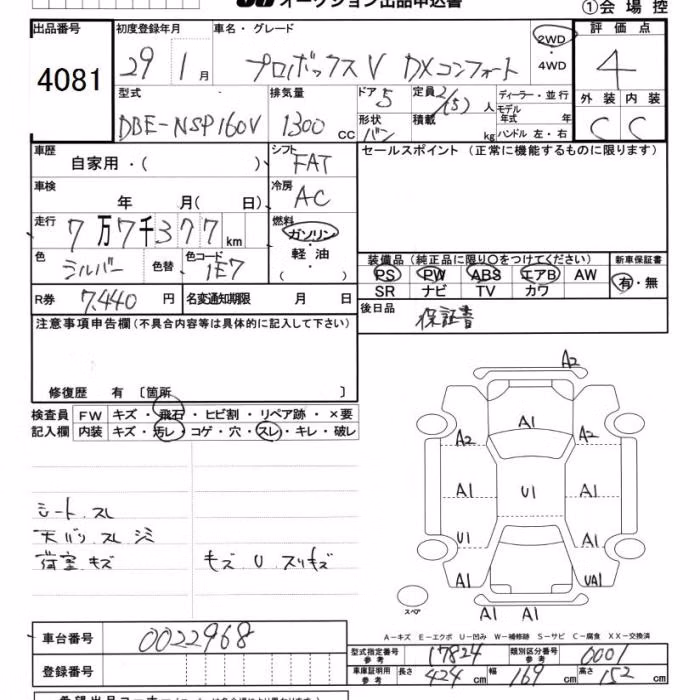 オークション出品申込書
①会場控
出品番号 4081
初度登録年月 29 1月
車名・グレード プロボックスV DXコンフォート
2WD・4WD
評価点 4
外装 C 内装 C
型式 DBE-NSP160V
排気量 1300 cc
ドア 5
形状 バン
定員 2/(5)人
積載 kg
ディーラー・並行
モデル年式 年
ハンドル 左・右
車歴 自家用・( )
シフト FAT
セールスポイント (正常に機能するものに限ります)
車検 年 月( 日)
冷房 AC
走行 7万7千377km
燃料 ガソリン・軽油・( )
色 シルバー 色替
色コード 1E7
装備品 (純正品に限り○をつけてください)
PS PW ABS エアB AW
SR ナビ TV カワ
新車保証書 有・無
R券 7,440円
名変通知期限 月 日
後日品 保証書
注意事項申告欄(不具合内容等は具体的に記入して下さい)
修復歴 有 〔箇所 〕
検査員記入欄
FW キズ・飛石・ヒビ割・リペア跡・×要
内装 キズ・汚レ・コゲ・穴・スレ・キレ・破レ
シート スレ
天バリ スレ シミ
荷室 キズ
キズ U スリキズ
A2
A1
A2 A2
A1 U1 A1
U1
A1 UA1
スペア
A1 A1
A-キズ E-エクボ U-凹み W-補修跡 S-サビ C-腐食 XX-交換済
車台番号 0022968
登録番号
型式指定番号 参考 17824
類別区分番号 参考 0001
車庫証明用 参考 長さ 424cm 幅 169cm 高さ 152cm